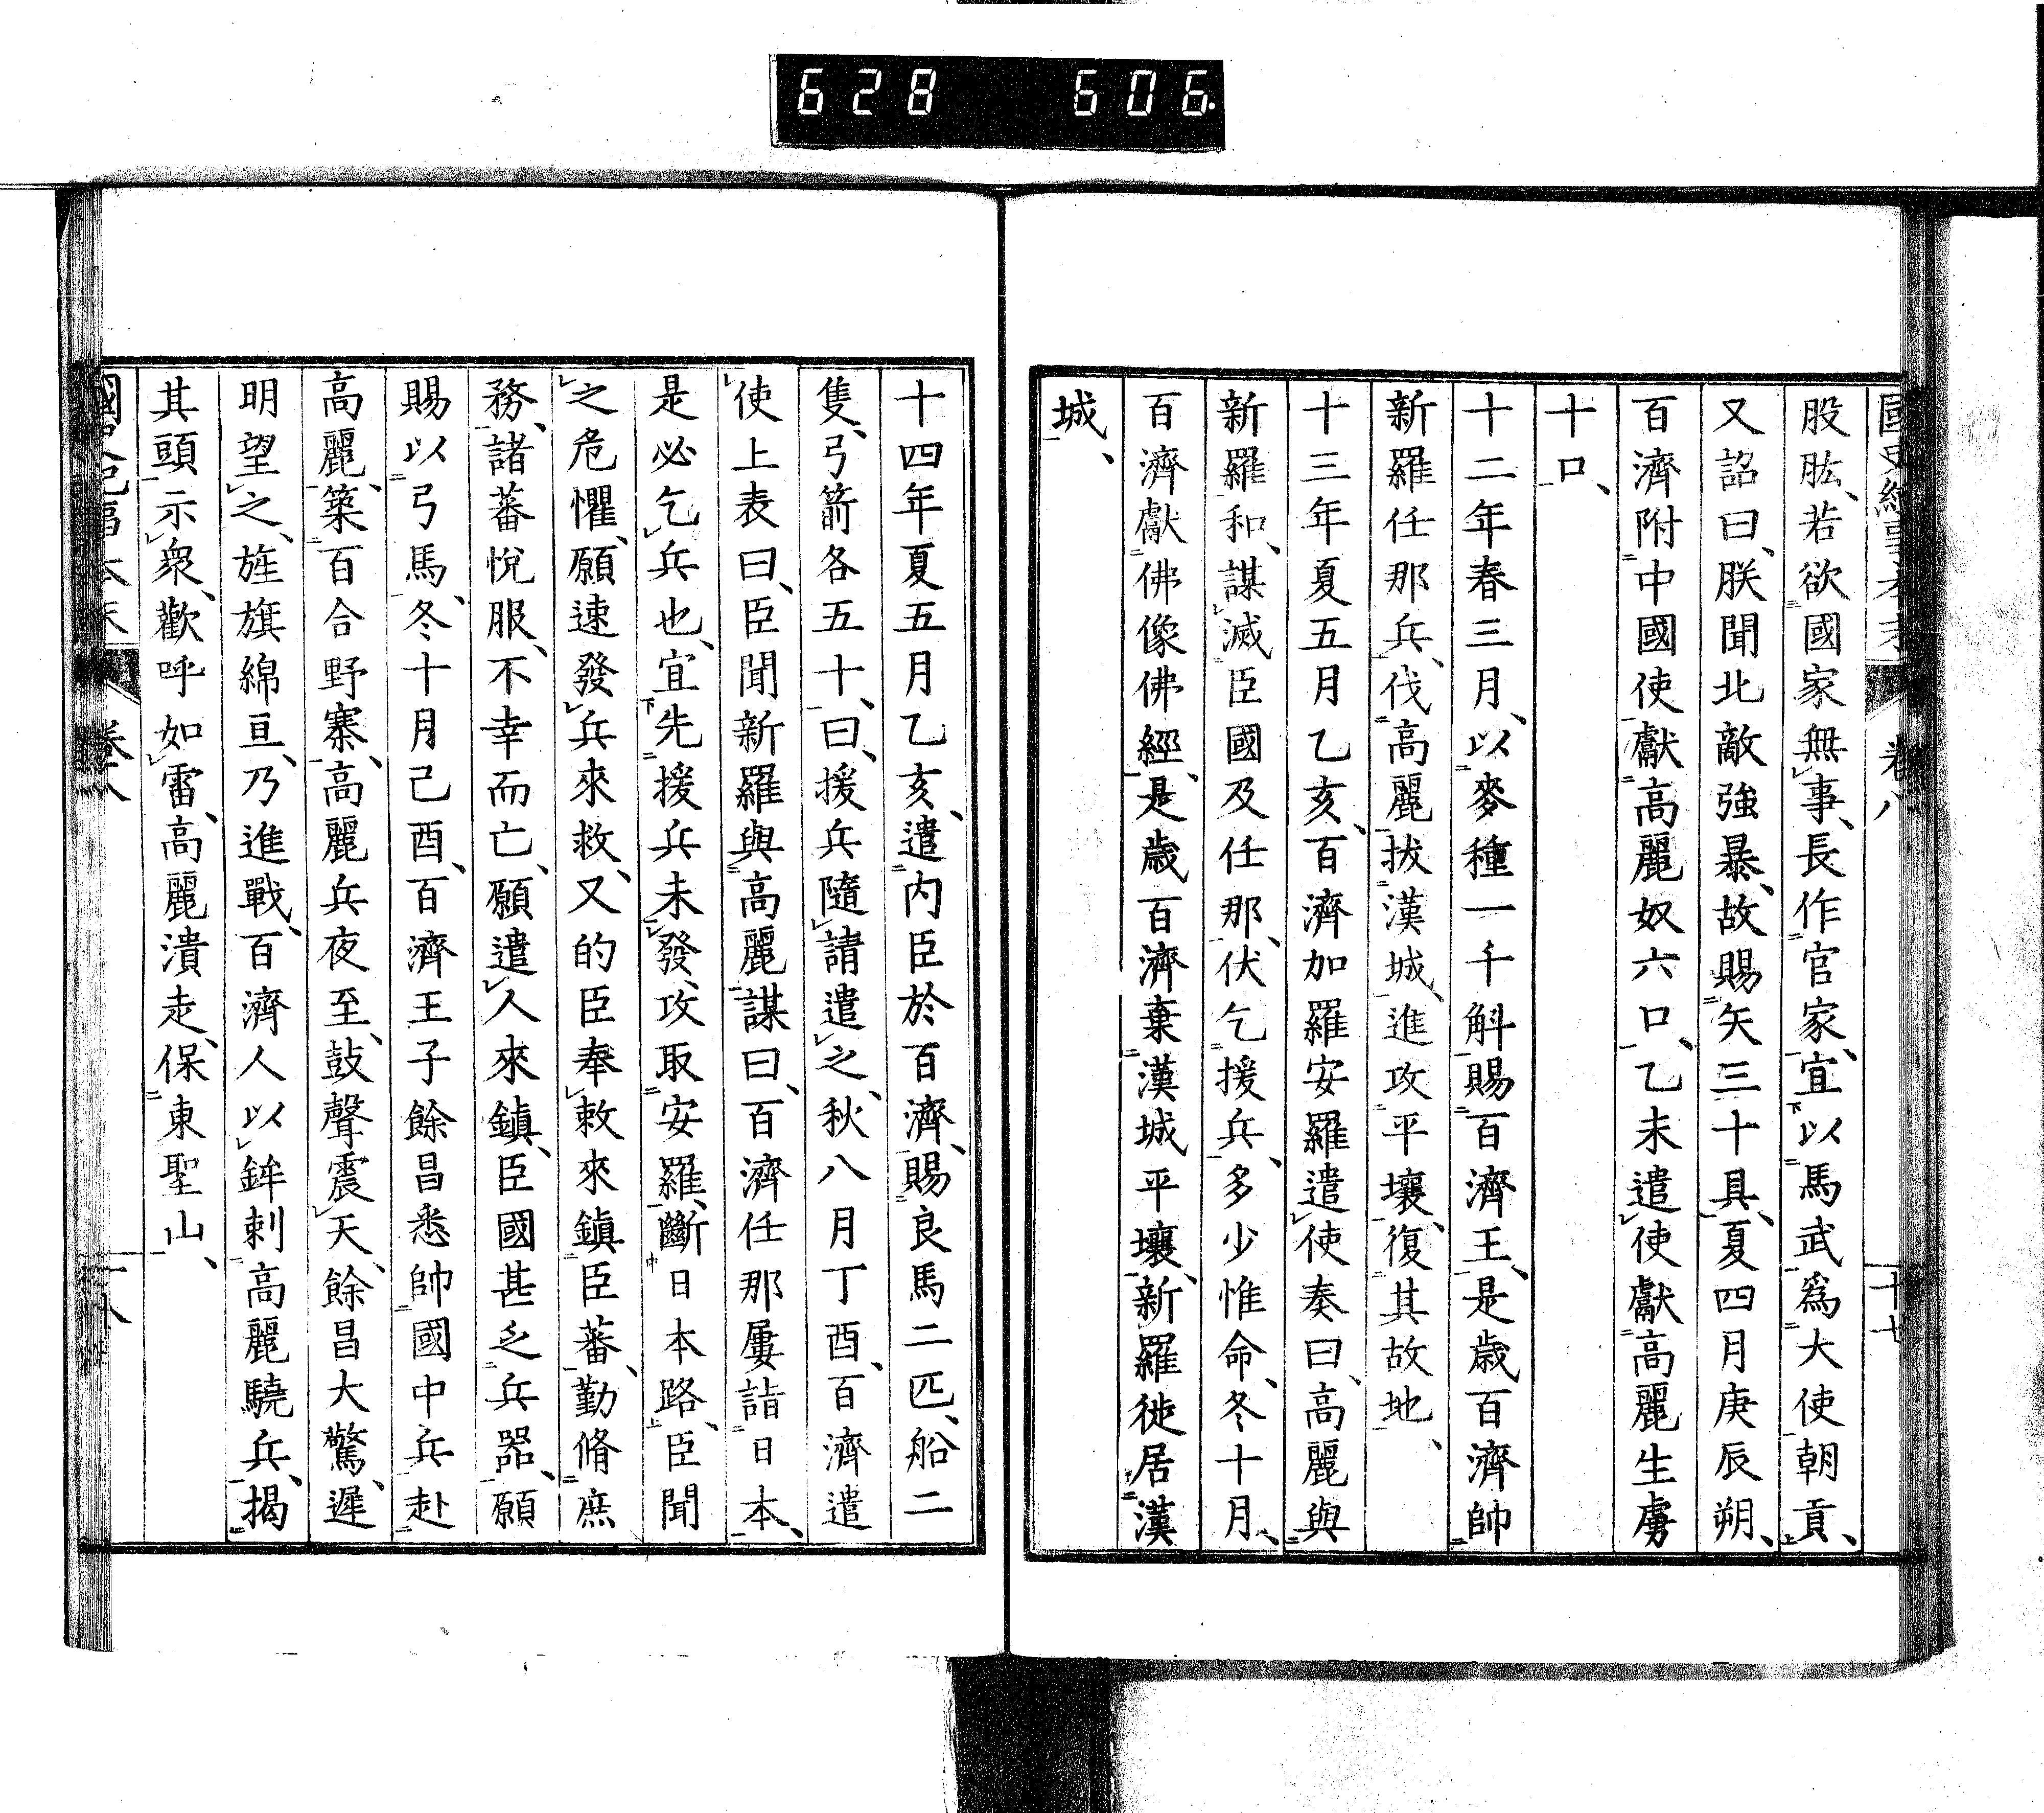 628 606.
國史紀事本末 卷八 十七
股肱、若欲國家無事、長作官家、宜以馬武爲大使朝貢、
又詔曰、朕聞北敵強暴、故賜矢三十具、夏四月庚辰朔、
百濟附中國使獻高麗奴六口、乙未遣使獻高麗生虜
十口、
十二年春三月、以麥種一千斛賜百濟王、是歲百濟帥
新羅任那兵、伐高麗拔漢城、進攻平壤、復其故地、
十三年夏五月乙亥、百濟加羅安羅遣使奏曰、高麗與
新羅和、謀滅臣國及任那、伏乞援兵、多少惟命、冬十月、
百濟獻佛像佛經、是歲百濟棄漢城平壤、新羅徙居漢
城、
十四年夏五月乙亥、遣內臣於百濟、賜良馬二匹、船二
隻、弓箭各五十、曰、援兵隨請遣之、秋八月丁酉、百濟遣
使上表曰、臣聞新羅與高麗謀曰、百濟任那屢詣日本、
是必乞兵也、宜先援兵未發、攻取安羅、斷日本路、臣聞
之危懼、願速發兵來救、又的臣奉敕來鎮臣蕃、勤脩庶
務、諸蕃悅服、不幸而亡、願遣人來鎮、臣國甚乏兵器、願
賜以弓馬、冬十月己酉、百濟王子餘昌悉帥國中兵赴
高麗、築百合野寨、高麗兵夜至、鼓聲震天、餘昌大驚、遲
明望之、旌旗綿亘、乃進戰、百濟人以鉾刺高麗驍兵、揭
其頭示衆、歡呼如雷、高麗潰走、保東聖山、
國史紀事本末 卷八 十八